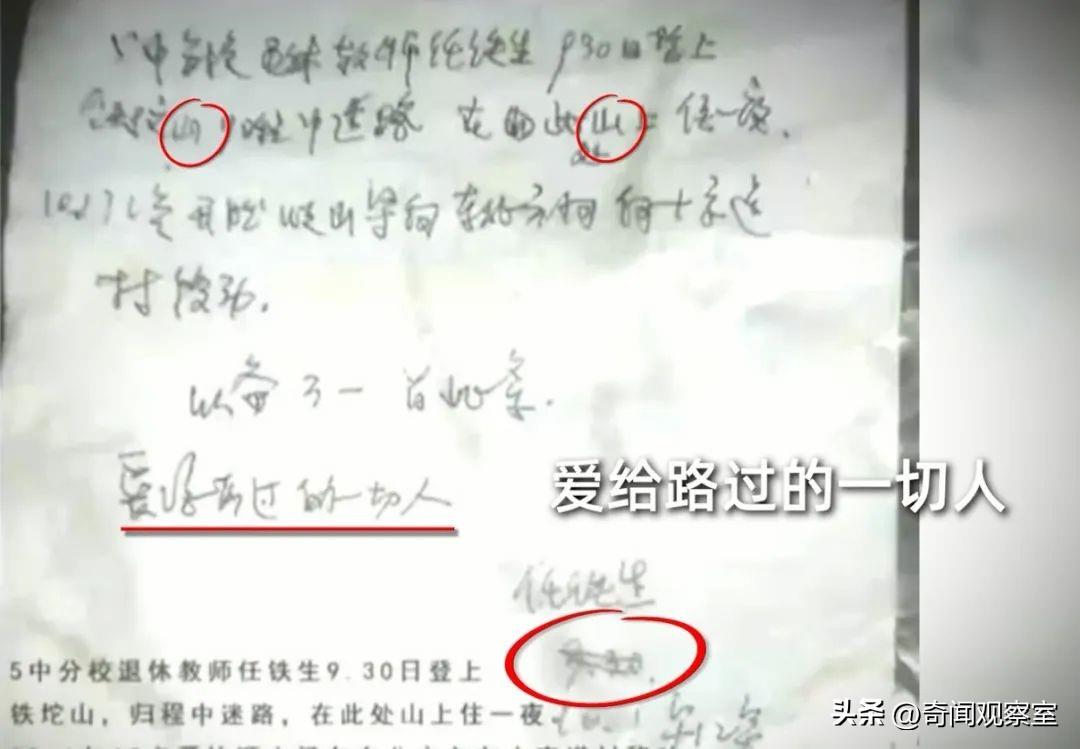 5中分校退休教师任铁生 9 30日登上
铁坨山 归程中迷路 在此山上住一夜.
山梁向东北方向向十字道
村移动.
以备万一留此条.
爱给路过的一切人
爱给路过的一切人
任铁生
5中分校退休教师任铁生9.30日登上
铁坨山，归程中迷路，在此处山上住一夜
头条 @奇闻观察室